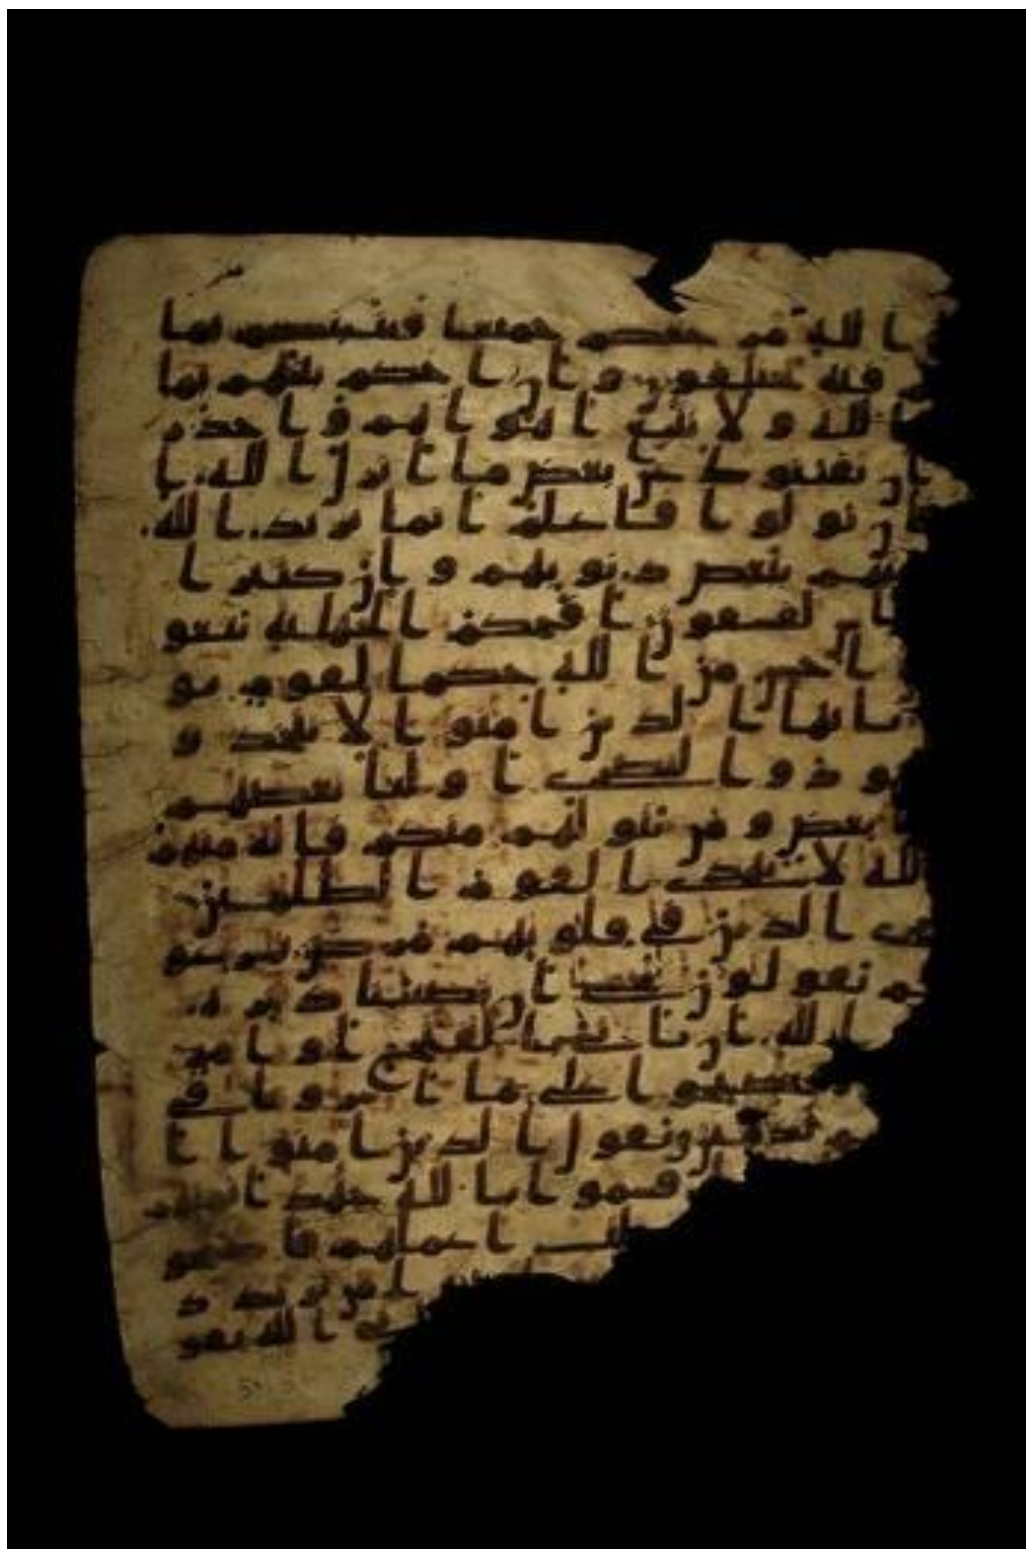 ا لله مرجعكم جميعا فينبئكم بما
فيه تختلفون و ان احكم بينهم بما
ا لله و لا تتبع اهواهم و احذر
ان يفتنوك عن بعض ما انزل الله ا
ن تولوا فاعلم انما يريد الله
بهم ببعض ذنوبهم و ان كثيرا
لناس لفسقون افحكم الجهلية يبغو
احسن من الله حكما لقوم يو
يايها الذين امنوا لا تتخذو
هود و النصرى اوليا بعضهم
بعض و من يتولهم منكم فانه منهم
الله لا يهدى القوم الظلمين
ى الذين في قلوبهم مرض يسرعو
هم يقولون نخشى ان تصيبنا دئرة
الله ان ياتي بالفتح او امر
فيصبحوا على ما اسروا في
هم ندمين ويقول الذين امنوا ا
اقسموا بالله جهد ايمنهم
طت اعملهم فاصبحو
من يرتد د
تي الله بقو